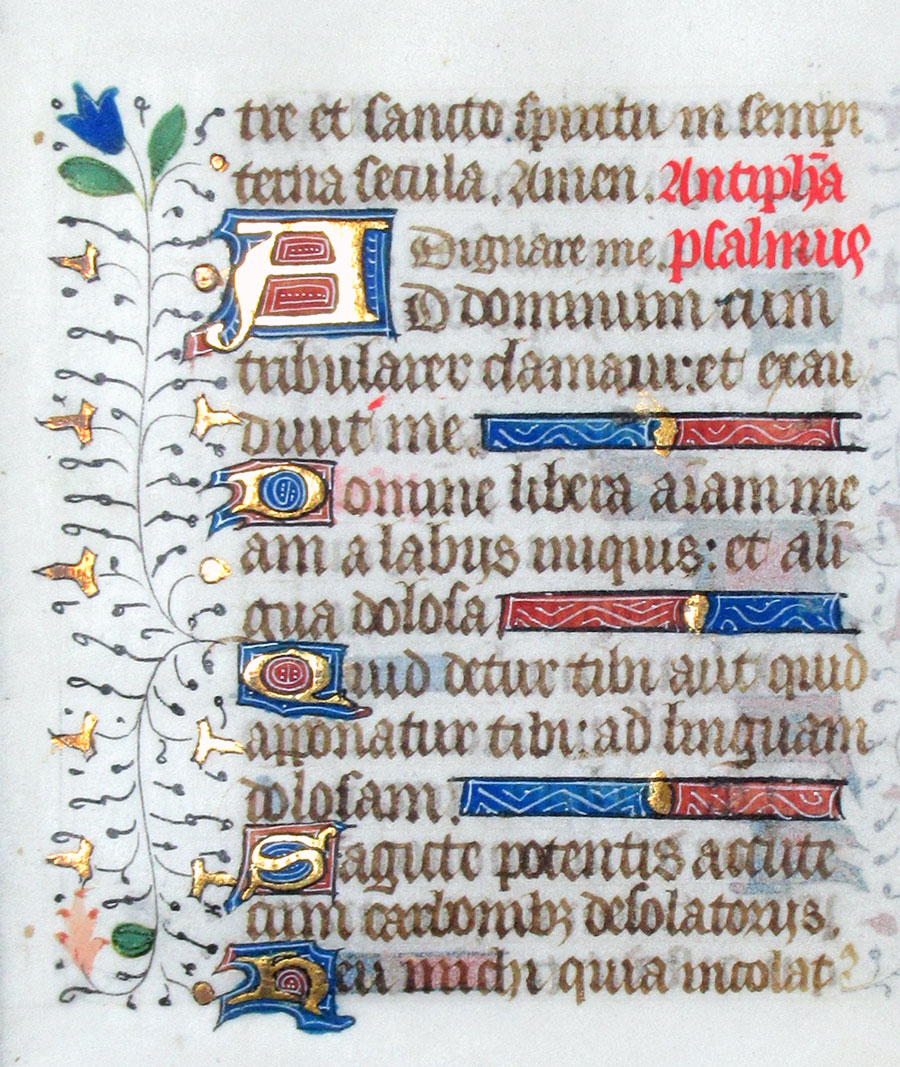 tre et sancto spiritu in sempi
terna secula. Amen. Antiph̄a
Dignare me. psalmus
AD dominum cum
tribularer clamaui: et exau
diuit me.
Domine libera aīam me
am a labijs iniquis: et a lī
gua dolosa
Quid detur tibi aut quid
apponatur tibi: ad linguam
dolosam.
Sagitte potentis accute
cum carbonibꝫ desolatorijs.
Heu michi quia incolat